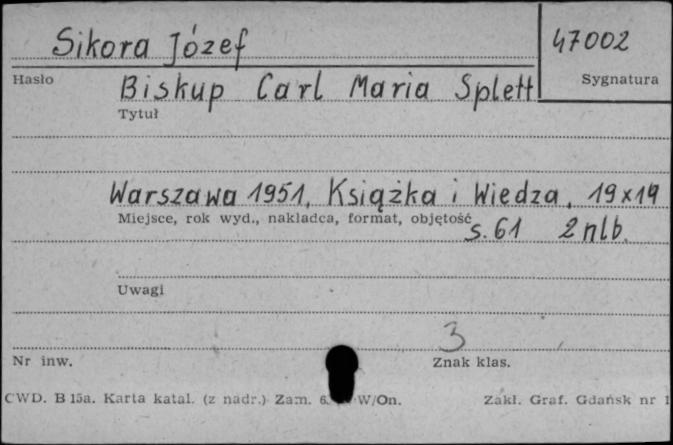 Sikora Józef 47002
Hasło Sygnatura
Biskup Carl Maria Splett
Tytuł
Warszawa 1951, Książka i Wiedza, 19x14
Miejsce, rok wyd., nakładca, format, objętość
s. 61 2 nlb.
Uwagi
3
Nr inw. Znak klas.
CWD. B 15a. Karta katal. (z nadr.) Zam. W/On. Zakł. Graf. Gdańsk nr 1